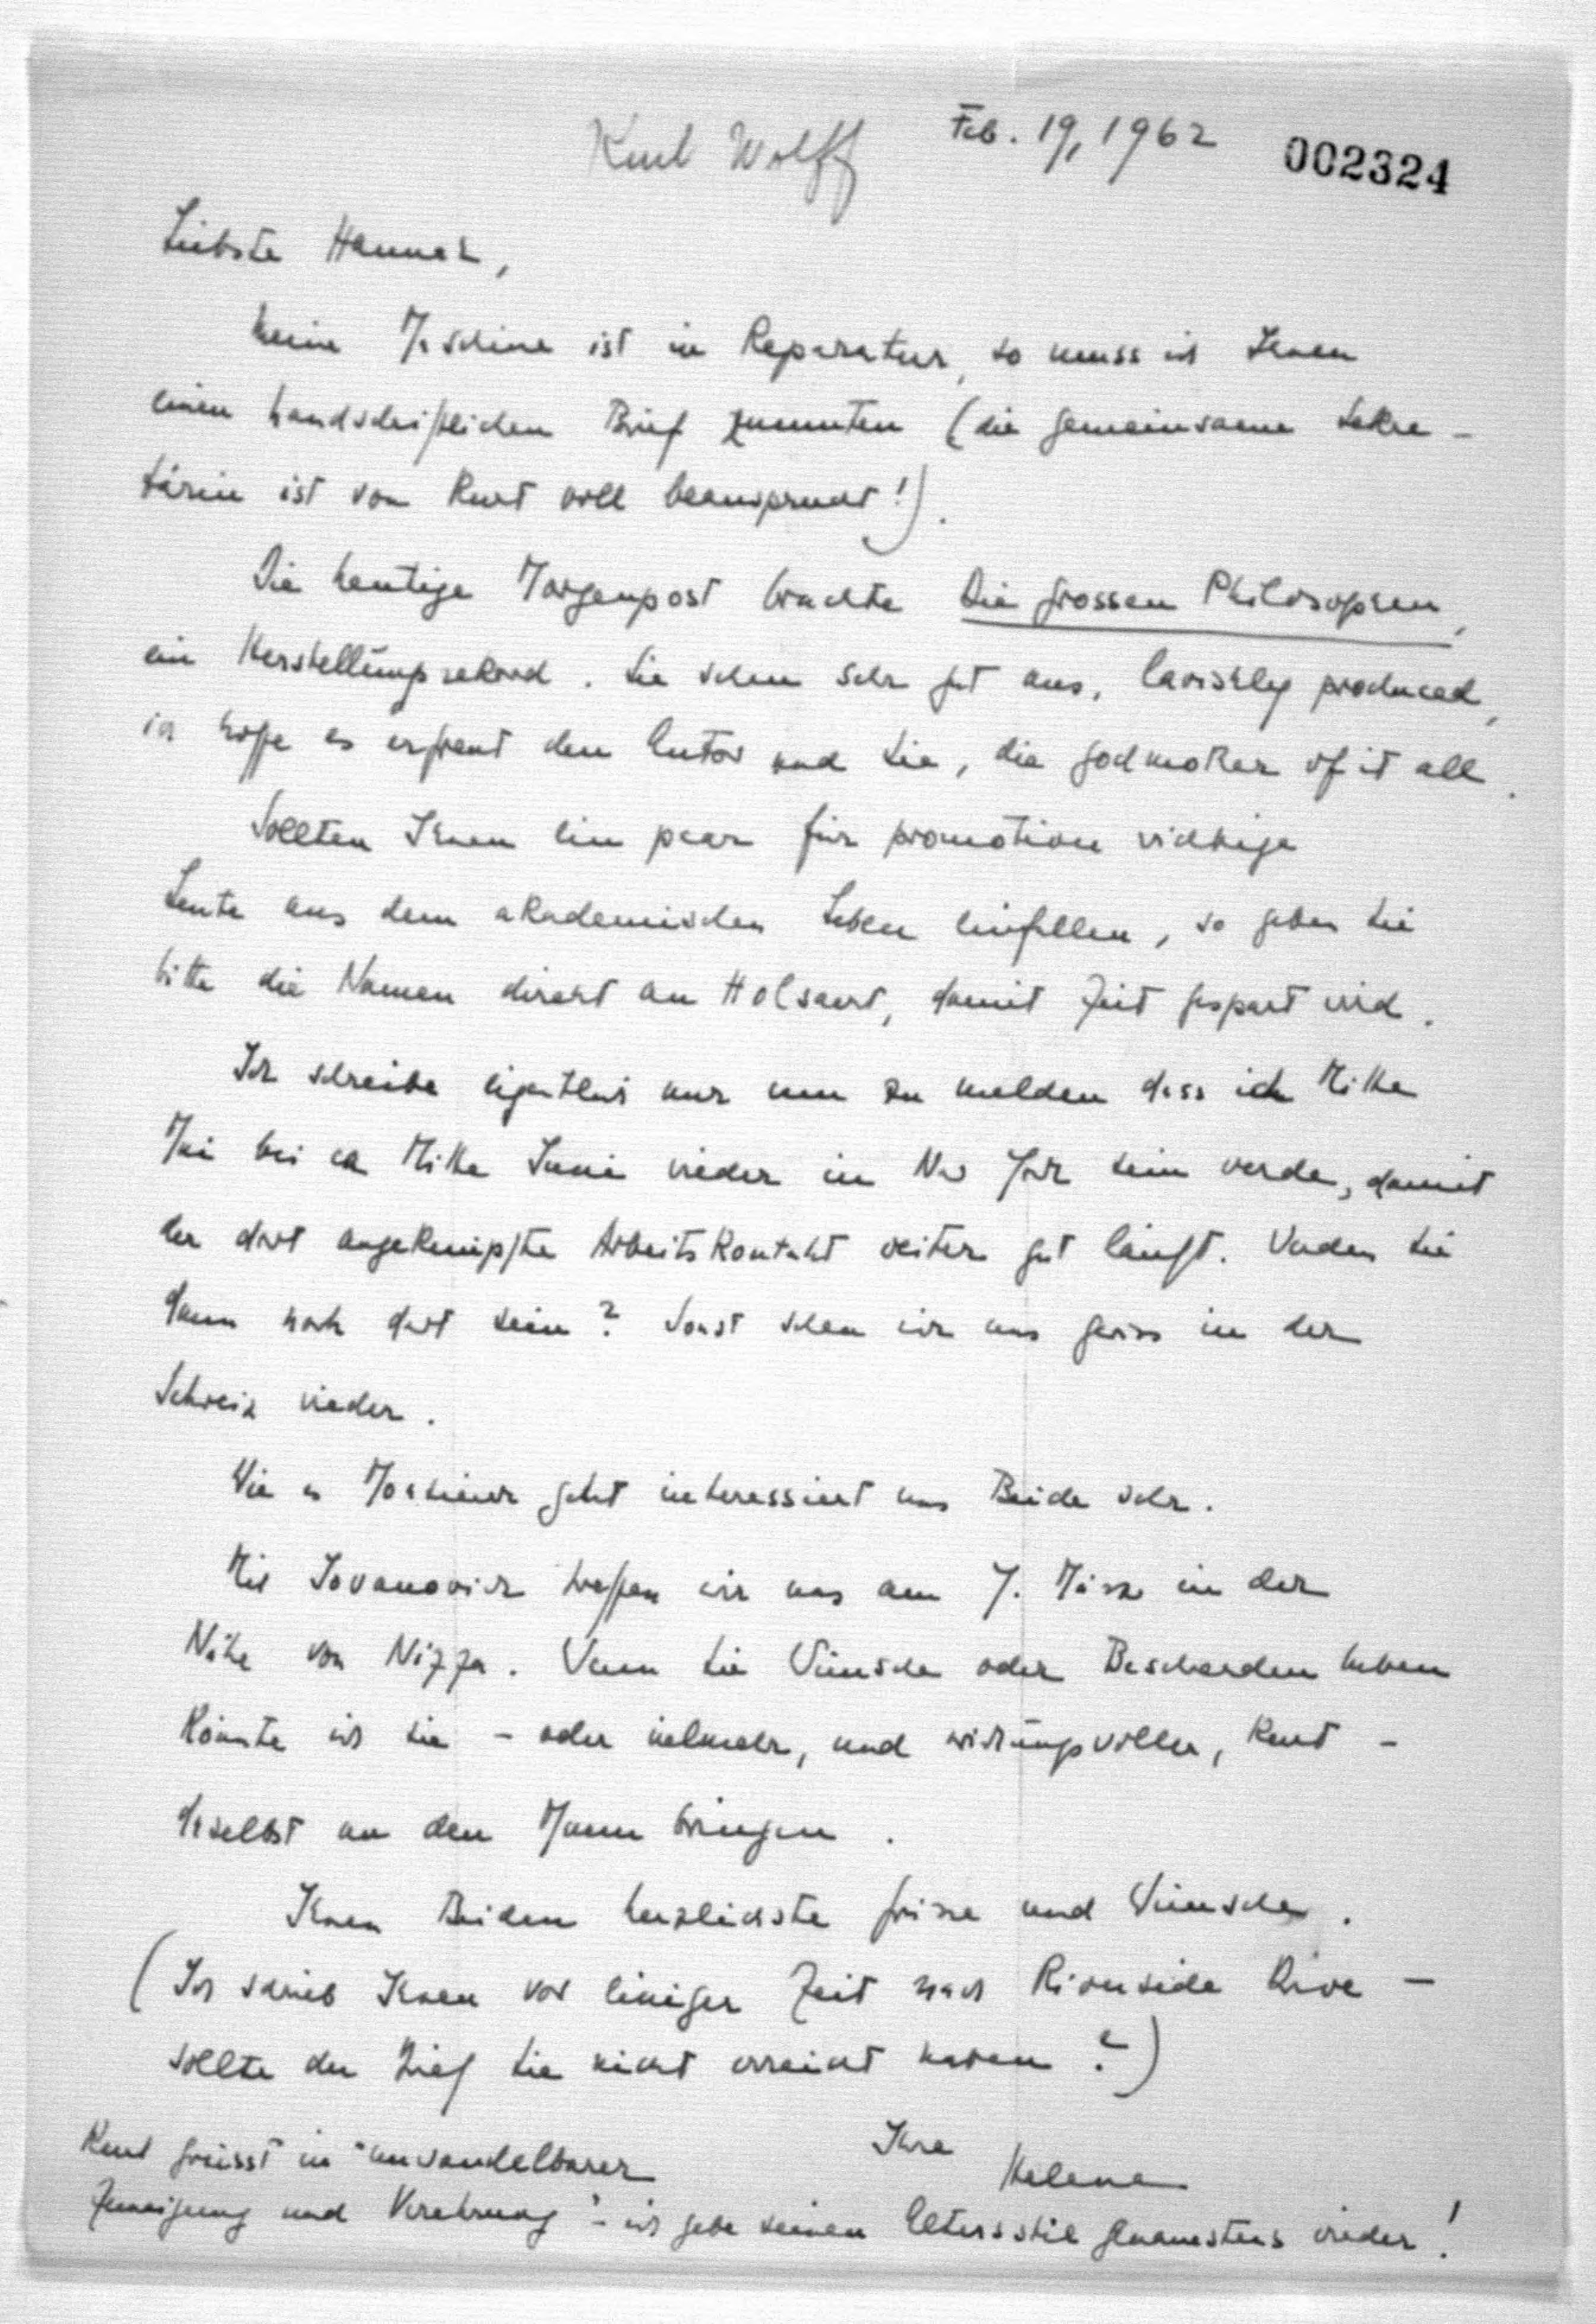 Kurt Wolff
Feb. 19, 1962
002324
Liebste Hannah,
meine Maschine ist in Reparatur, so muss ich Ihnen
einen handschriftlichen Brief zumuten (die gemeinsame Sekre-
tärin ist von Kurt voll beansprucht!).
Die heutige Morgenpost brachte Die grossen Philosophen,
ein Herstellungsrekord. Sie sehen sehr gut aus, lavishly produced,
ich hoffe es erfreut den Autor und Sie, die godmother of it all.
Sollten Ihnen ein paar für promotion wichtige
Leute aus dem akademischen Leben einfallen, so geben Sie
bitte die Namen direkt an Holsaert, damit Zeit gespart wird.
Ich schreibe eigentlich nur um zu melden dass ich Mitte
Mai bis ca Mitte Juni wieder in New York sein werde, damit
der dort angeknüpfte Arbeitskontakt weiter gut läuft. Werden Sie
dann noch dort sein? Sonst sehen wir uns gewiss in der
Schweiz wieder.
Wie es Heinrich geht interessiert uns Beide sehr.
Mit Jovanovich treffen wir uns am 7. März in der
Nähe von Nizza. Wenn Sie Wünsche oder Beschwerden haben
könnte ich sie - oder vielmehr, und wirkungsvoller, Kurt -
daselbst an den Mann bringen.
Ihnen Beiden herzlichste Grüsse und Wünsche.
(Ich schrieb Ihnen vor einiger Zeit nach Riverside Drive -
sollte der Brief Sie nicht erreicht haben?)
Ihre
Helene
Kurt grüsst in "unwandelbarer
Zuneigung und Verehrung" - ich gebe seinen Altersstil genauestens wieder!